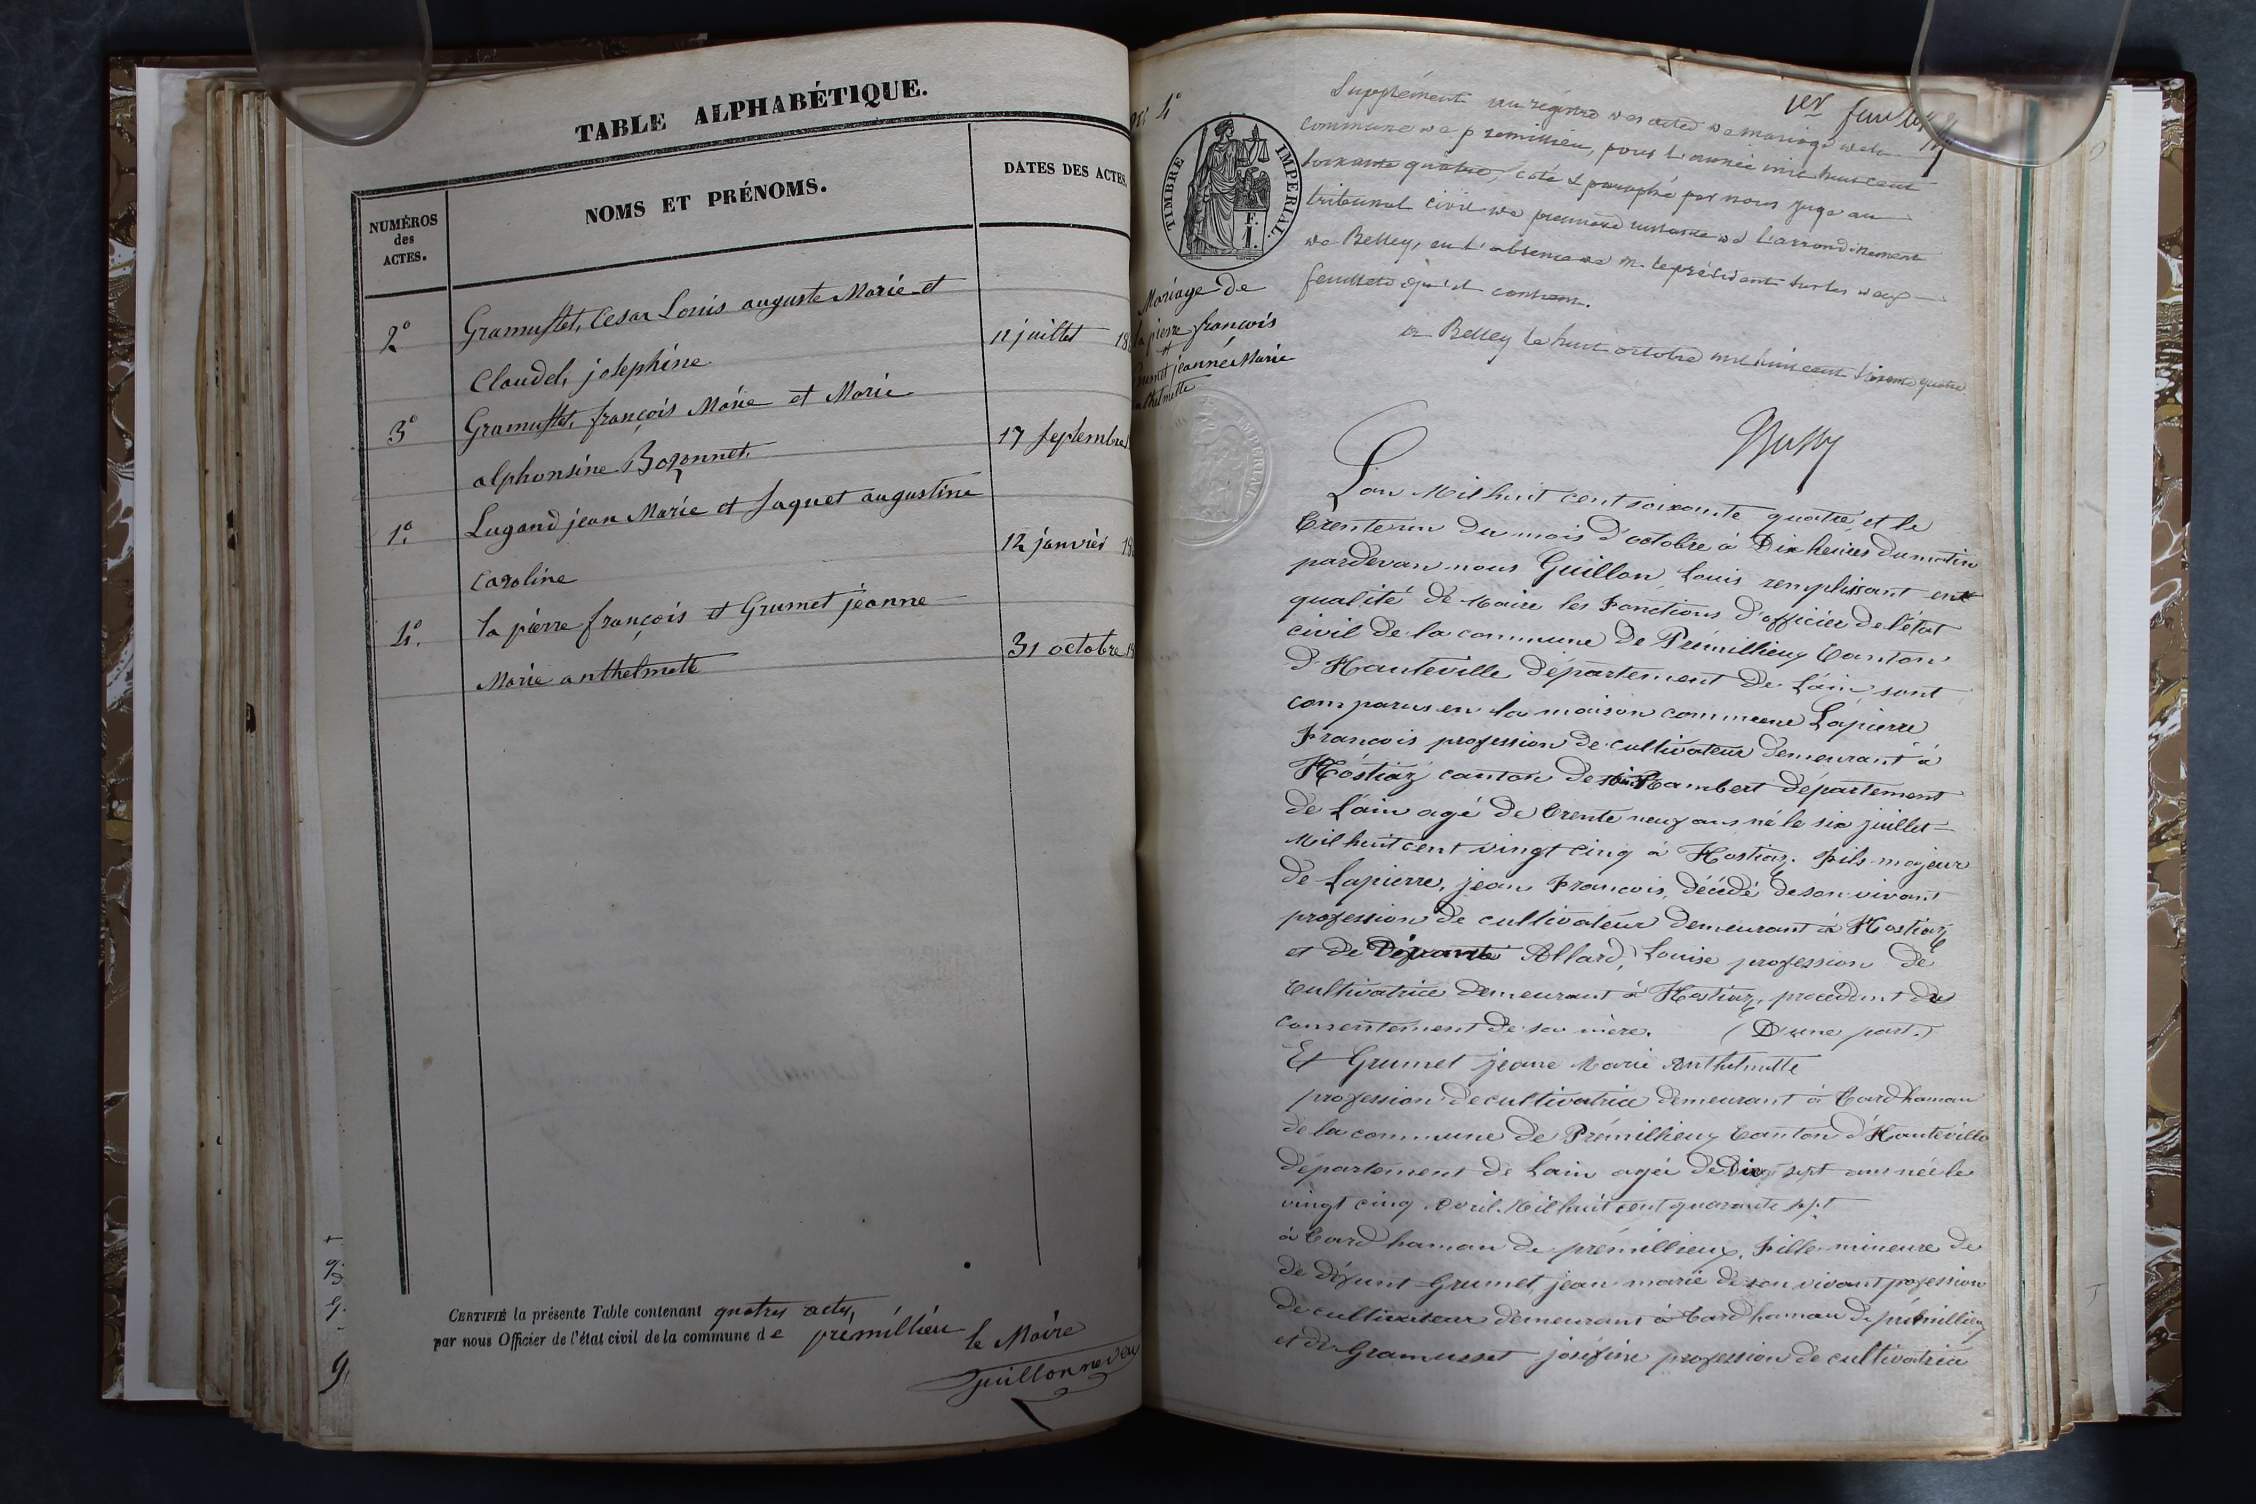 TABLE ALPHABÉTIQUE.
NUMÉROS
des
ACTES.
NOMS ET PRÉNOMS.
DATES DES ACTES.
2° Gramusset, Cesar Louis auguste Marie et
Claudet, joséphine 12 juillet 18
3° Gramusset, françois Marie et Marie
alphonsine Bozonnet. 17 septembre
1°. Lugand jean Marie et Jaquet augustine
Caroline 12 janvier 18
4°. la pierre françois et Grumet jeanne
Marie anthelmette 31 octobre 18
CERTIFIÉ la présente Table contenant quatres actes,
par nous Officier de l'état civil de la commune de prémillieu
le Maire
Guillon neveu
4°
1er feuillet
TIMBRE IMPÉRIAL.
F.
I.
Supplément au régistre des actes de mariage de la
commune de premillieu, pour l'année mil huit cent
soixante quatre, coté & paraphé par nous juge au
tribunal civil de première instance de l'arrondissement
de Belley, en l'absence de M. le président sur les deux
feuillets qu'il contient.
a Belley le huit octobre mil huit cent soixante quatre
Mariage de
la pierre françois
et
Grumet jeanne Marie
anthelmette
L'an Mil huit cent soixante quatre et le
trente un du mois d'octobre à Dix heures du matin
pardevan nous Guillon Louis remplissant en
qualité de Maire les Fonctions d'officier de l'état
civil de la commune de Prémillieux Canton
d'Hauteville département de l'ain, sont
comparus en la maison commune Lapierre
Francois profession de cultivateur demeurant à
Hóstiaz canton de saint Rambert département
de l'ain agé de trente neuf ans né le six juillet
Mil huit cent vingt cinq à Hostiaz. fils majeur
de Lapierre, jean Francois, décédé de son vivant
profession de cultivateur demeurant à Hostiaz
et de Allard, Louise profession de
Cultivatrice demeurant à Hostiaz, procédant du
consentement de sa mère. (D'une part.)
Et Grumet jeane Marie Anthelmette
profession de cultivatrice demeurant à tard hamau
de la commune de Prémillieux Canton d'Hauteville
département de Lain agée de Dix sept ans née le
vingt cinq Avril. Mil huit cent quarante sept
à tard hamau de prémillieux. Fille mineure de
de défunt Grumet, jean marie de son vivant profession
de cultivateur demeurant à tard hamau de prémillieux
et de Gramusset joséfine profession de cultivatrice